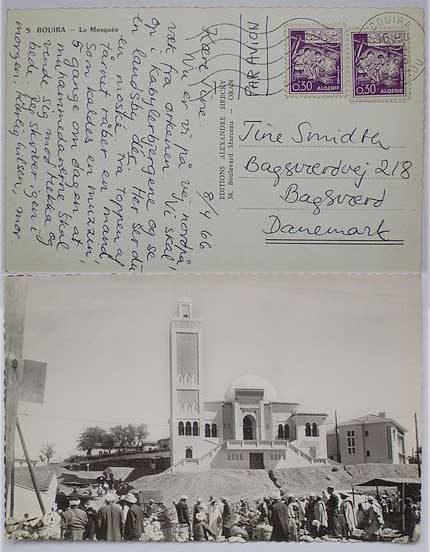 5 BOUIRA — La Mosquée
8/4 66
Kære Tine.
Nu er vi på vej nordpå
væk fra ørkenen. Vi skal
op i Kabylerbjergene og se
en landsby der. Her ser du
en moské. Fra toppen af
tårnet råber en mand
Som kaldes en muezzin,
5 gange om dagen, at
muhammedanerne skal
vende sig mod Mekka og
bede. Jeg skriver igen i
morgen. Kærlig hilsen, mor
EDITIONS ALEXANDRE
36, Boulevard Marceau - ORAN
PAR AVION
BOUIRA
0.30 ALGERIE
0.30 ALGERIE
Tine Smidth
Bagsværdvej 218
Bagsværd
Danemark